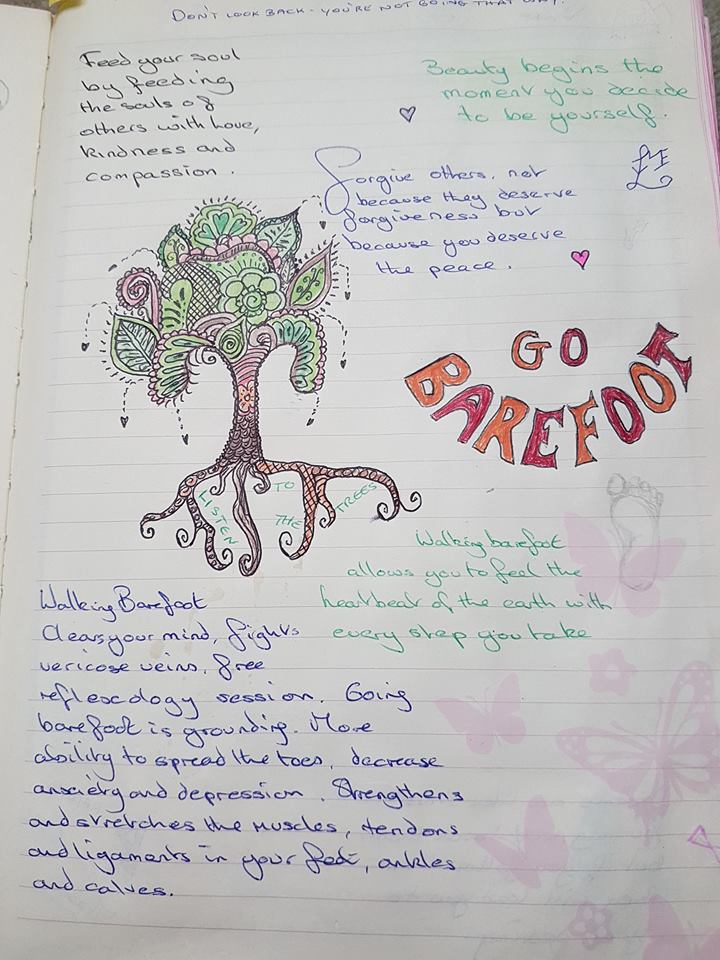 DON'T LOOK BACK - YOU'RE NOT GOING THAT WAY.
Feed your soul
by feeding
the souls of
others with Love,
kindness and
compassion.
Beauty begins the
moment you decide
to be yourself.
Forgive others, not
because they deserve
forgiveness but
because you deserve
the peace.
GO
BAREFOOT
LISTEN
TO
THE
TREES
Walking barefoot
allows you to feel the
heartbeat of the earth with
every step you take
Walking Barefoot
Clears your mind, fights
vericose veins, free
reflexology session. Going
barefoot is grounding. More
ability to spread the toes, decrease
anxiety and depression. Strengthens
and stretches the muscles, tendons
and ligaments in your feet, ankles
and calves.